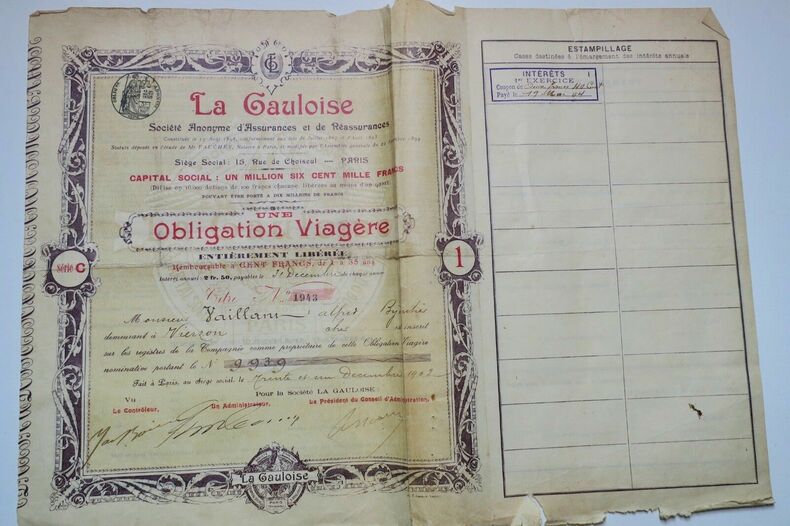 La Gauloise
Société Anonyme d'Assurances et de Réassurances
Statuts déposés en l'étude de Me FAUCHEY, Notaire à Paris, et modifiés par l'Assemblée générale du
Siège Social : 15, Rue de Choiseul — PARIS
CAPITAL SOCIAL : UN MILLION SIX CENT MILLE FRANCS
(Divisé en 16.000 actions de 100 francs chacune, libérées au moins d'un quart)
POUVANT ÊTRE PORTÉ A DIX MILLIONS DE FRANCS
UNE
Obligation Viagère
ENTIÈREMENT LIBÉRÉE
Remboursable à CENT FRANCS, de 1 à 35 ans
Intérêt annuel : 2 fr. 50, payables le 31 Décembre de chaque année
Série C
1
Titre No 1943
Monsieur Vaillant Alfred
demeurant à Vierzon Cher est inscrit
sur les registres de la Compagnie comme propriétaire de cette Obligation Viagère
nominative portant le No 9939
Fait à Paris, au Siège social, le trente et un Décembre 1902
Pour la Société LA GAULOISE :
Vu
Le Contrôleur, Un Administrateur, Le Président du Conseil d'Administration,
La Gauloise
PARIS
ESTAMPILLAGE
Cases destinées à l'émargement des intérêts annuels
INTÉRÊTS
1er EXERCICE
Coupon de Deux francs 40 c
Payé le 19 Mai 04